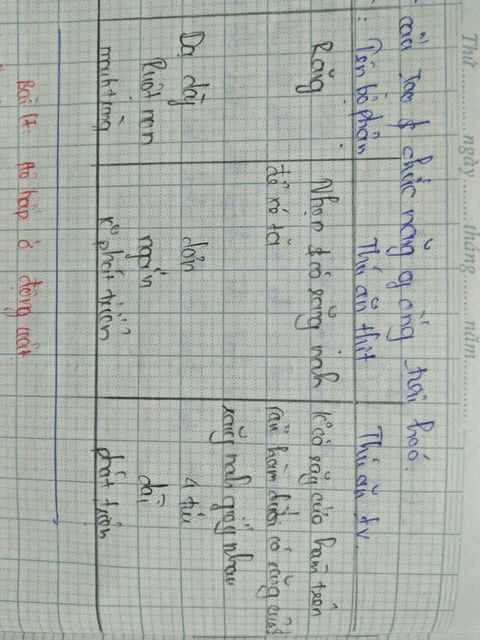 Thứ ......... ngày ......... tháng ......... năm .........
cấu tạo & chức năng of ống tiêu hoá
Tên bộ phận Thú ăn thịt Thú ăn tv
Răng Nhọn & có răng nanh K có răng cửa hàm trên
để xé
răng nanh giống nhau
Dạ dày đơn 4 túi
Ruột non ngắn dài
manh tràng k phát triển phát triển
Bài 17: Hô hấp ở động vật